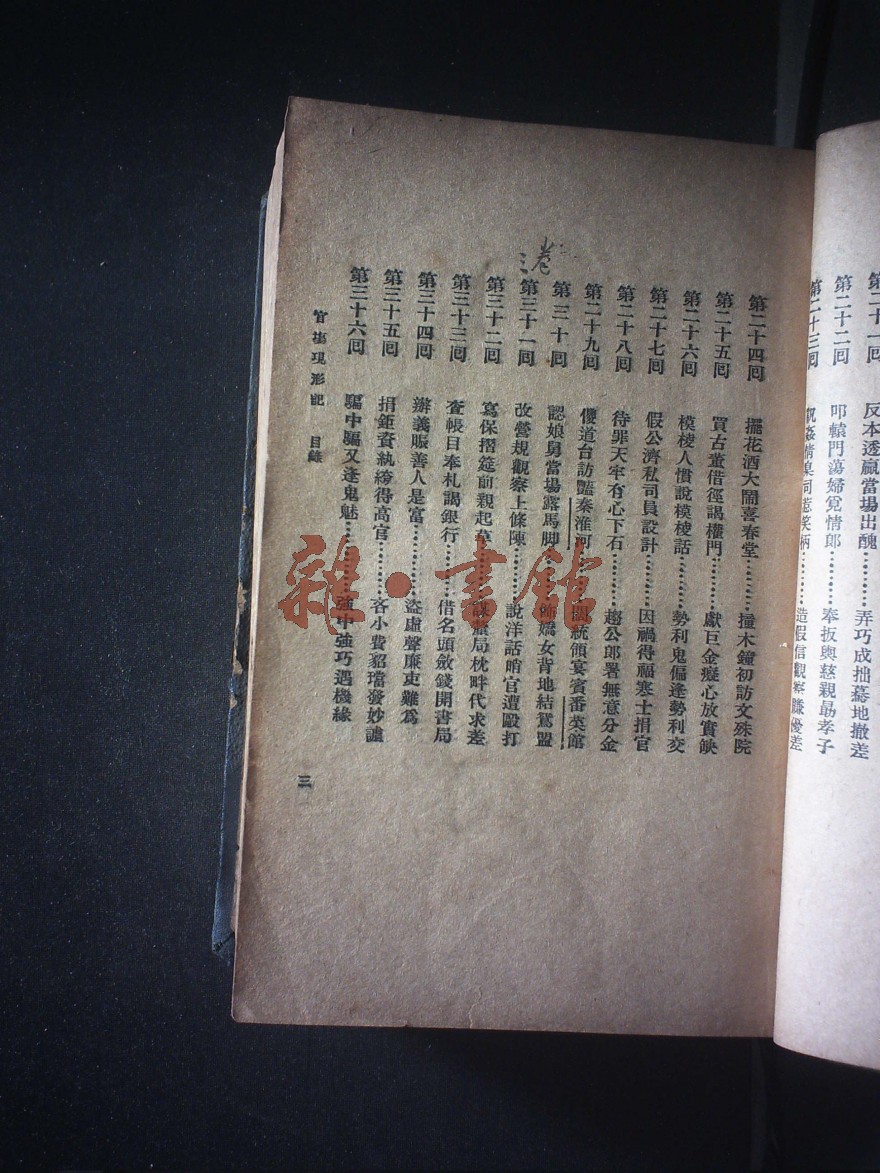 第二十一回 反本透贏當場出醜………弄巧成拙驀地撤差
第二十二回 叩轅門蕩婦覓情郎………奉板輿慈親勗孝子
第二十三回 訊姦情臬司惹笑柄………造假信觀察賺優差
第二十四回 擺花酒大鬧喜春堂………撞木鐘初訪文殊院
第二十五回 買古董借徑謁權門………獻巨金癡心放實缺
第二十六回 模棱人慣說模棱話………勢利鬼偏逢勢利交
第二十七回 假公濟私司員設計………因禍得福寒士捐官
第二十八回 待罪天牢有心下石………趨公郎署無意分金
第二十九回 儍道台訪豔秦淮河………闊統領宴賓番菜館
第三十回 認娘舅當場露馬脚………飾嬌女背地結鴛盟
第三十一回 改營規觀察上條陳………說洋話哨官遭毆打
第三十二回 寫保摺筵前親起草………謀釐局枕畔代求差
第三十三回 查帳目奉札謁銀行………借名頭斂錢開書局
第三十四回 辦義賑善人是富………盜虛聲廉吏難爲
第三十五回 捐鉅資紈絝得高官………吝小費貂璫發妙謔
第三十六回 騙中騙又逢鬼魅………強中強巧遇機緣
官塲現形記 目錄
三
三卷
雜·書館